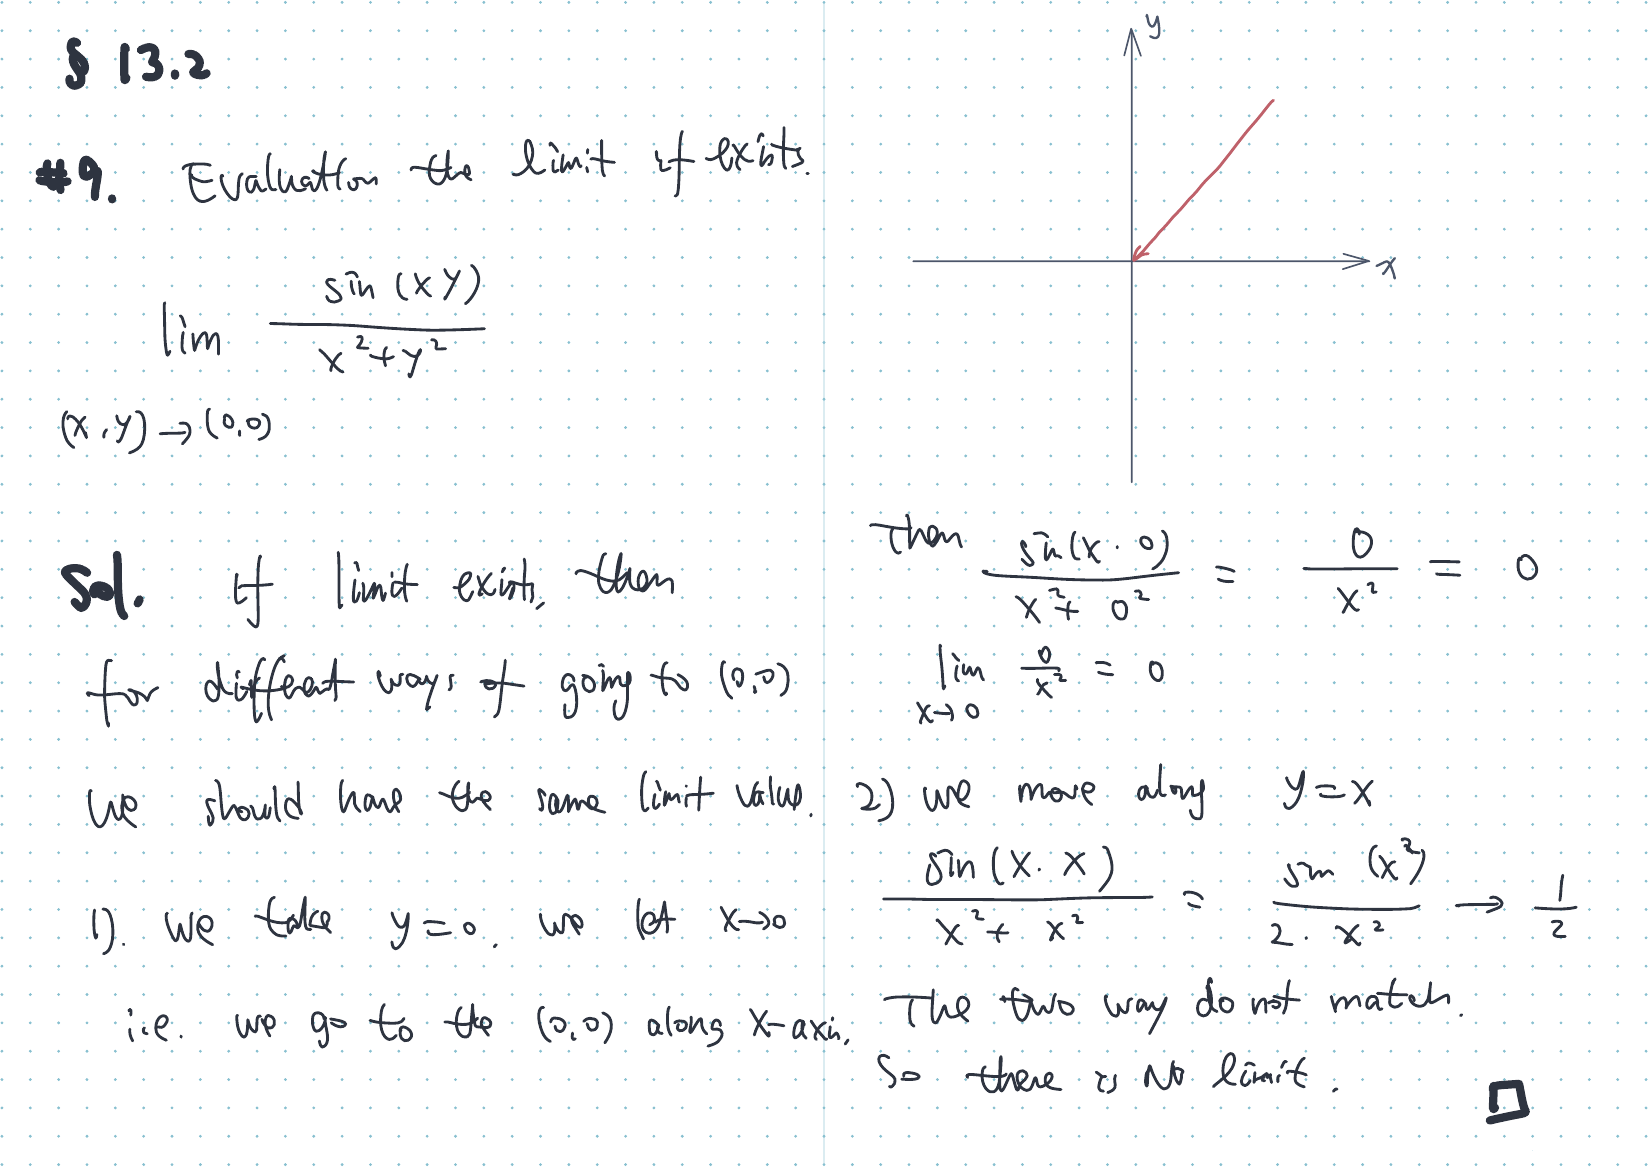 § 13.2
#9. Evaluation the limit if exists.
lim sin (xy) / x²+y²
(x,y)→(0,0)
Sol. If limit exists, then
for different ways of going to (0,0)
we should have the same limit value.
1). we take y=0. we let x→0
i.e. we go to the (0,0) along x-axis.
y
x
Then sin(x·0) / x²+0² = 0 / x² = 0
lim 0/x² = 0
x→0
2) we move along y=x
sin (x·x) / x²+x² = sin (x²) / 2·x² → 1/2
The two way do not match.
So there is No limit.